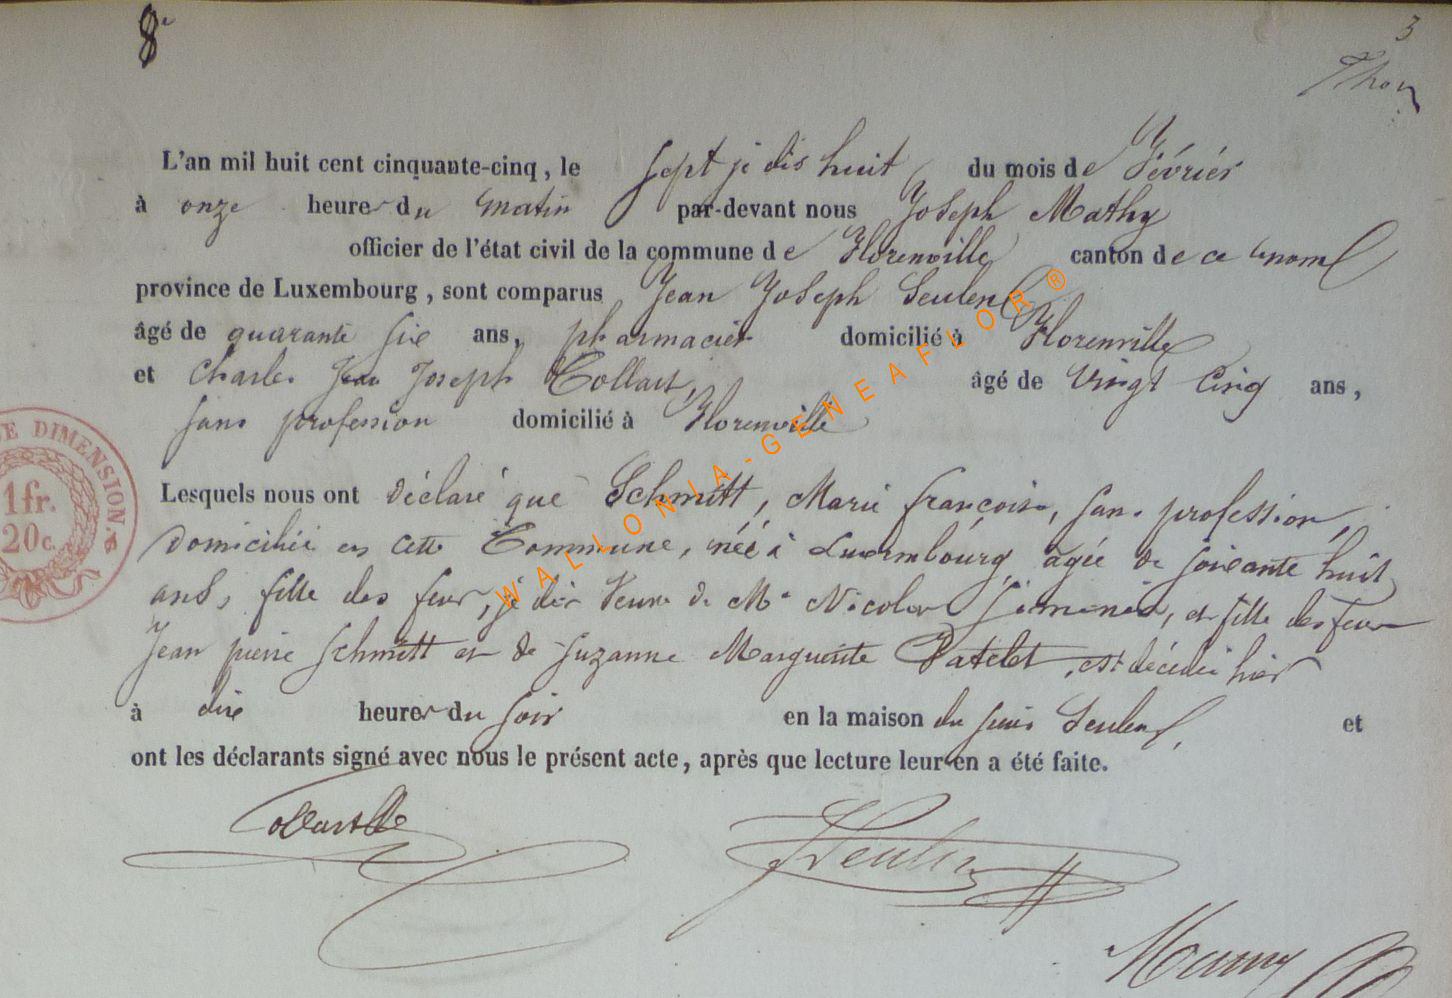 8e
3
Thon
L'an mil huit cent cinquante-cinq, le sept je dis huit du mois de Février
à onze heures du matin par-devant nous Joseph Mathy
officier de l'état civil de la commune de Florenville canton de ce nom
province de Luxembourg, sont comparus Jean Joseph Seulen
âgé de quarante six ans, pharmacien domicilié à Florenville
et Charles Jean Joseph Collart, âgé de vingt cinq ans,
sans profession domicilié à Florenville
Lesquels nous ont déclaré que Schmitt, Marie françoise, sans profession,
domiciliée en cette Commune, née à Luxembourg, agée de soixante huit
ans, fille des feus, je dis Veuve de Mr Nicolas et fille des feus
Jean pierre Schmitt et de Suzanne Marguerite Patelet, est décédée hier
à dix heures du soir en la maison du sieur Seulen, et
ont les déclarants signé avec nous le présent acte, après que lecture leur en a été faite.
Collart
Seulen
DE DIMENSION.
1 fr.
20c.
WALLONIA-GENEAFLOR®